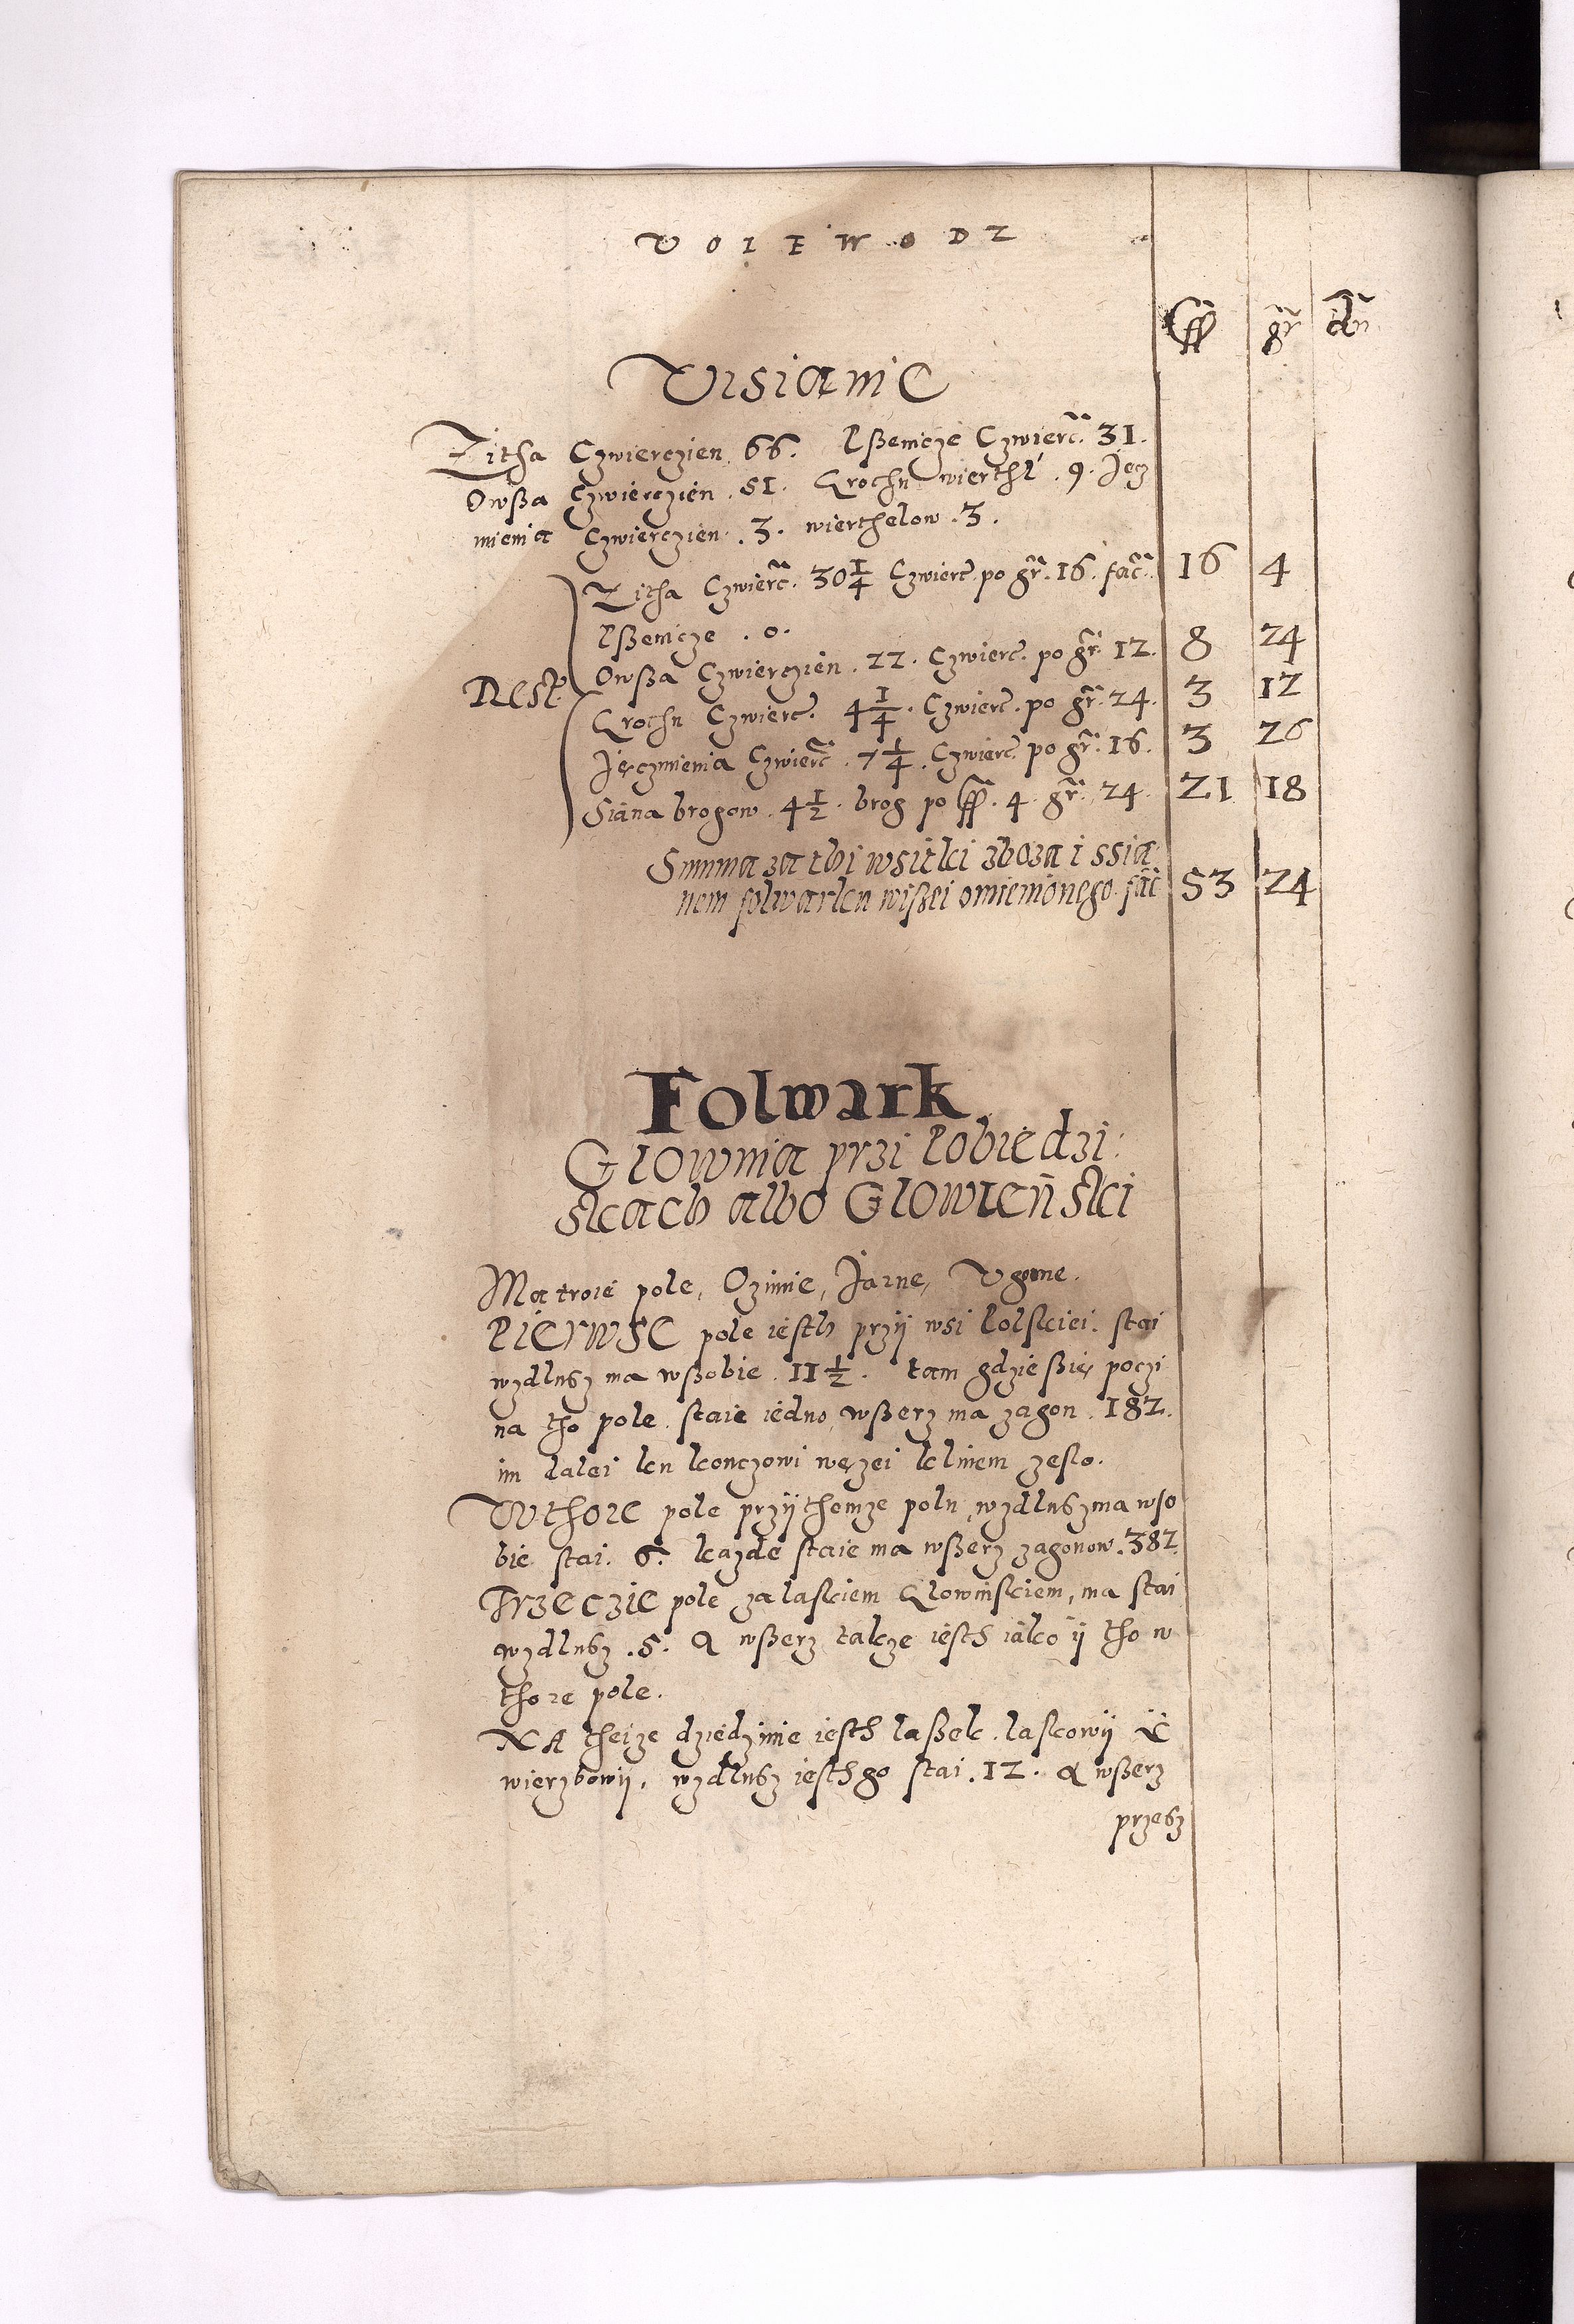 VOIEWODZ
ff gr dn
Wsianie
Zitha Czwierczien 66. Pßenicze Czwierc. 31.
Owßa Czwierczien . 51. Grochu wierthl . 9. Jęcz
mienia Czwierczien . 3. wierthelow . 3.
Zitha Czwierc. 30 1/4 Czwierc. po gr. 16. fac. 16 4
Pßenicze . 0.
Owßa Czwierczien . 22. Czwierc. po gr. 12. 8 24
Rest
Grochu Czwierc. 4 1/4. Czwierc. po gr. 24. 3 12
Jęczmienia Czwierc. 7 1/4. Czwierc. po gr. 16. 3 26
Siana brogow . 4 1/2. brog po ff. 4. gr. 24. 21 18
Summa za thi wsitki zboza i ssia
nem folwarku wißei omienionego fac 53 24
Folwark
Glownia przi Pobiedzi:
skach albo Glowieński
Ma troie pole, Ozimie, Jarne, Vgorne.
Pierwse pole iesth przÿ wsi Polskiei. stai
wzdlusz ma wßobie . 11 1/2. tam gdzie ßię poczi
na tho pole. staie iedno wßerz ma zagon . 182.
im dalei ku konczowi węzei klinem zeslo.
Wthore pole przÿ themze polu wzdlusz ma wso
bie stai. 6. kazde staie ma wßerz zagonow . 382.
Trzeczie pole za laskiem Glowinskiem, ma stai
wzdlusz . 5. A wßerz takze iesth iako ÿ tho w
thore pole.
NA theize dziedzinie iesth laßek . laskowÿ ÿ
wierzbowÿ, wzdlusz iesth go stai . 12. A wßerz
przesz